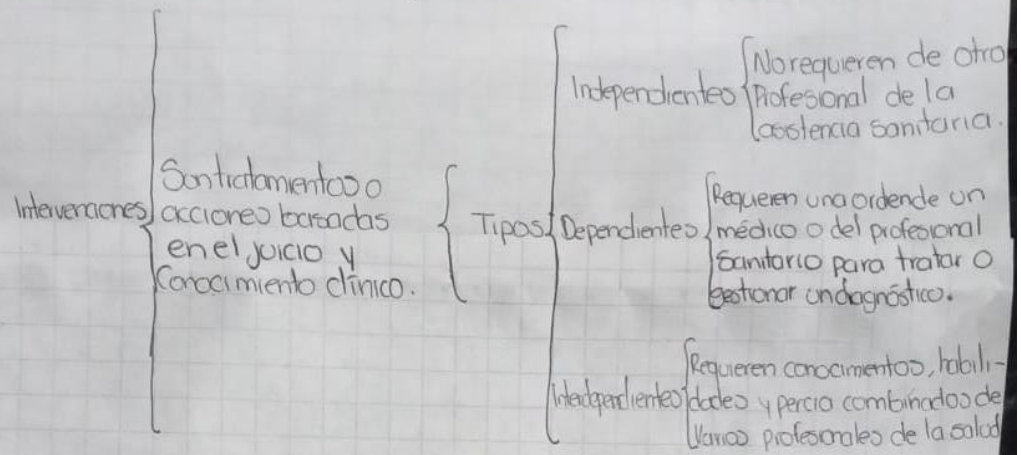 Intervenciones
Son tratamientos o
acciones basadas
en el juicio y
Conocimiento clínico.
Tipos
Independientes
No requieren de otro
Profesional de la
asistencia sanitaria.
Dependientes
Requieren una orden de un
médico o del profesional
Sanitario para tratar o
gestionar un diagnóstico.
Interdependientes
Requieren conocimientos, habili-
dades y percia combinados de
Varios profesionales de la salud